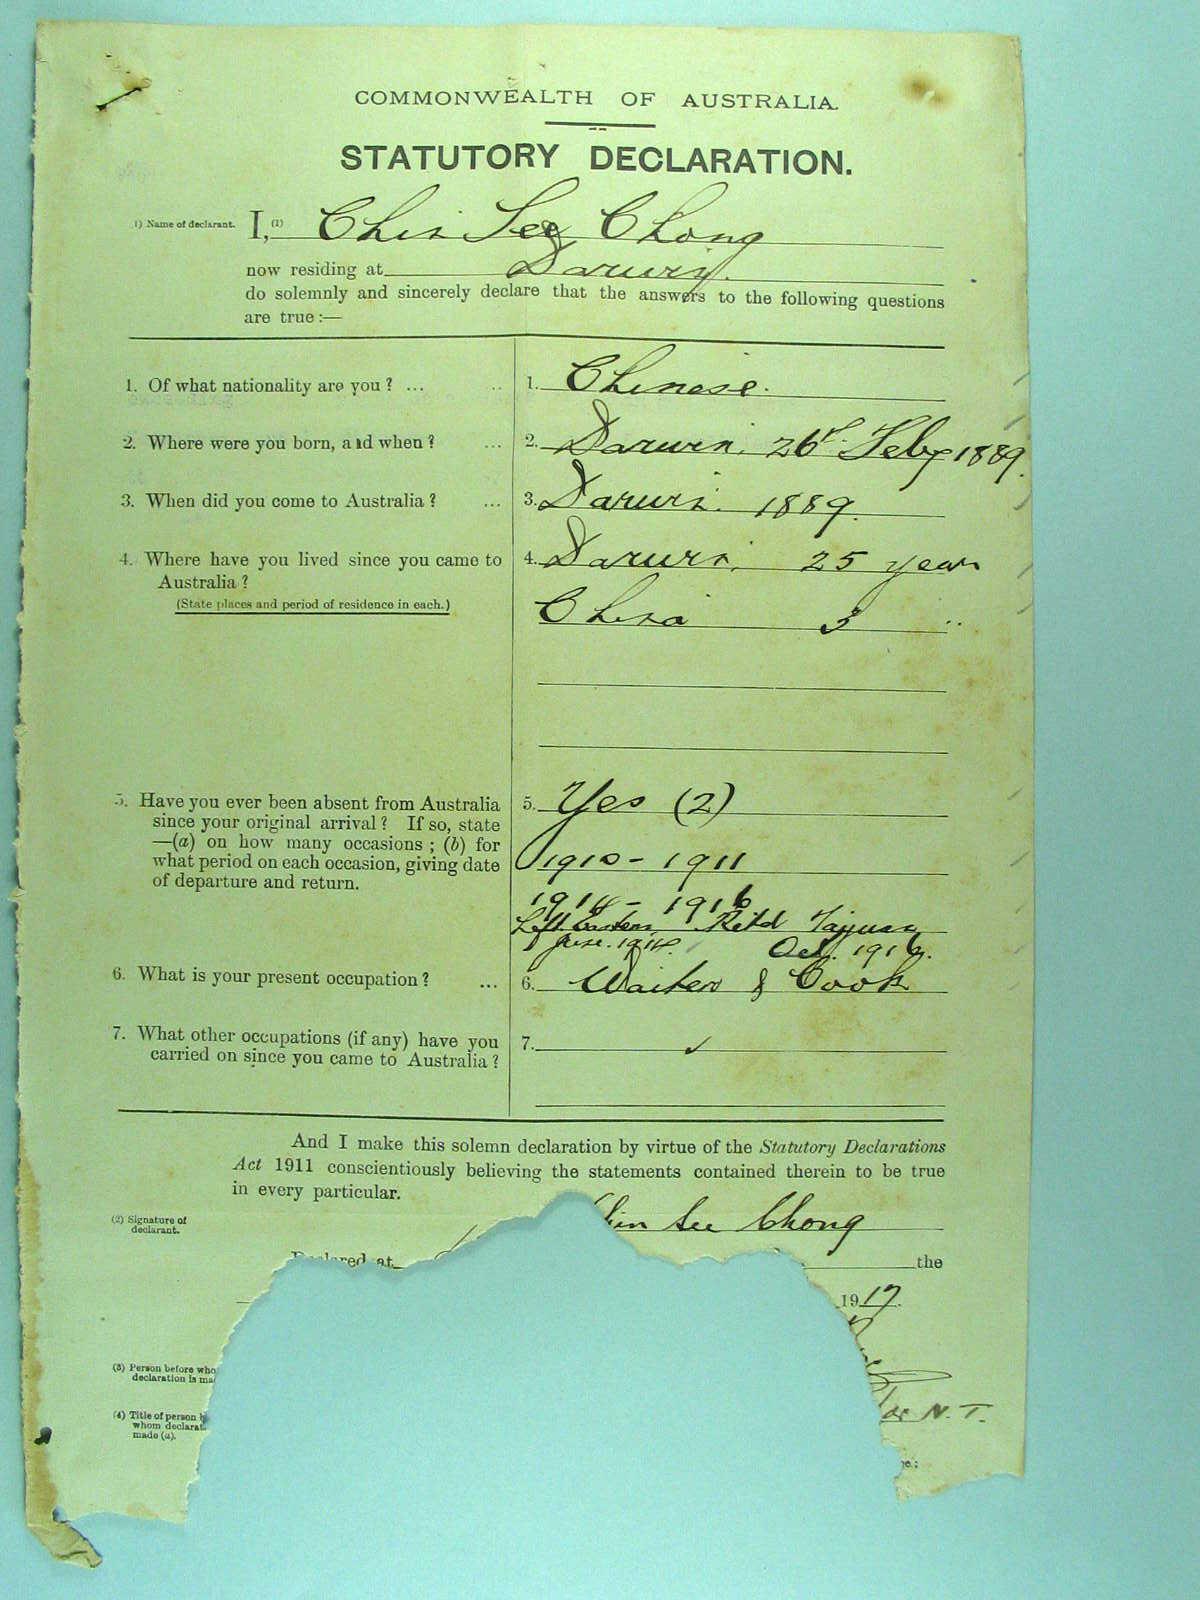 COMMONWEALTH OF AUSTRALIA.
STATUTORY DECLARATION.
1) Name of declarant. I, (1) Chin See Chong
now residing at Darwin.
do solemnly and sincerely declare that the answers to the following questions
are true :—
1. Of what nationality are you ? ... .. 1. Chinese.
2. Where were you born, and when ? ... 2. Darwin. 26th Feby 1889.
3. When did you come to Australia ? ... 3. Darwin. 1889.
4. Where have you lived since you came to 4. Darwin. 25 years
Australia ?
(State places and period of residence in each.)
China 3 "
5. Have you ever been absent from Australia 5. Yes (2)
since your original arrival ? If so, state
—(a) on how many occasions ; (b) for
what period on each occasion, giving date 1910 - 1911
of departure and return.
1914 - 1916
Left Eastern Retd Taiyuan
June. 1914. Oct. 1916.
6. What is your present occupation ? ... 6. Waiter & Cook
7. What other occupations (if any) have you 7.
carried on since you came to Australia ?
And I make this solemn declaration by virtue of the Statutory Declarations
Act 1911 conscientiously believing the statements contained therein to be true
in every particular.
(2) Signature of
declarant.
hin See Chong
Declared at the
1917.
(3) Person before who
declaration is ma
(4) Title of person b
whom declarat
made (a).
N. T.